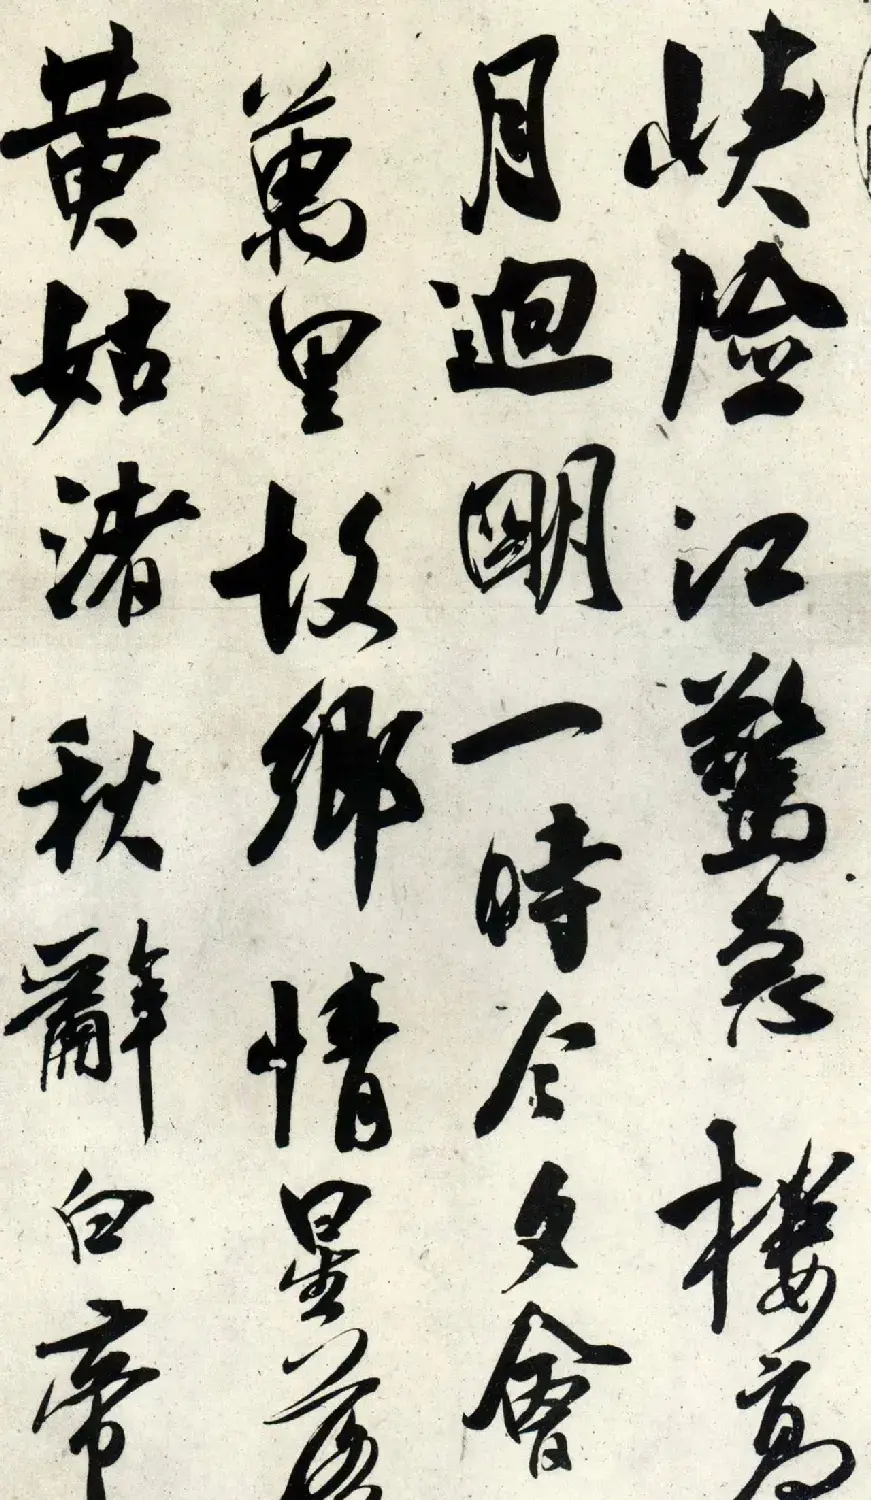 峽險江驚急樓高
月逈明一時今夕會
萬里故鄉情星落
黄姑渚秋辭白帝